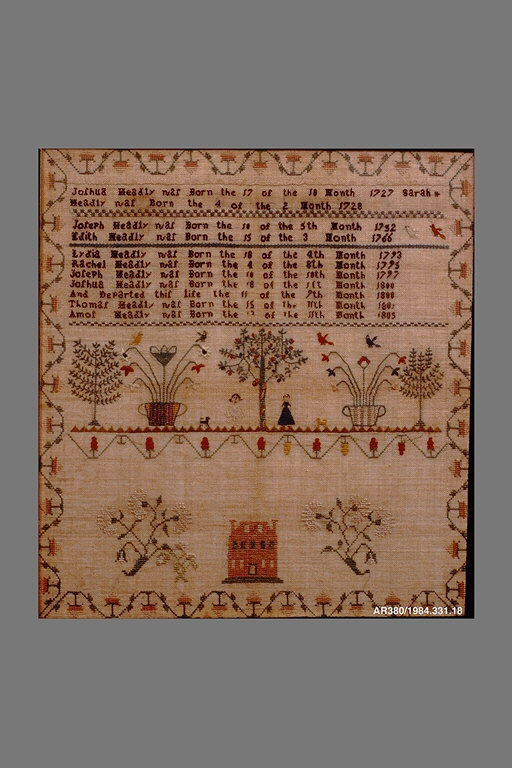 Joſhua Headly waſ Born the 17 of the 10 Month 1727 Sarah
Headly waſ Born the 4 of the 2 Month 1728
Joſeph Headly waſ Born the 10 of the 5th Month 1752
Edith Headly waſ Born the 15 of the 3 Month 1766
Lydia Headly waſ Born the 18 of the 4th Month 1793
Rachel Headly waſ Born the 4 of the 8th Month 1795
Joſeph Headly waſ Born the 10 of the 10th Month 1797
Joſhua Headly waſ Born the of the Month 1800
And Departed thiſ life the 11 of the Month 1800
Thomaſ Headly waſ Born the 15 of the 11th Month
Amoſ Headly waſ Born the of the Month 1805
AR380/1984.331.18